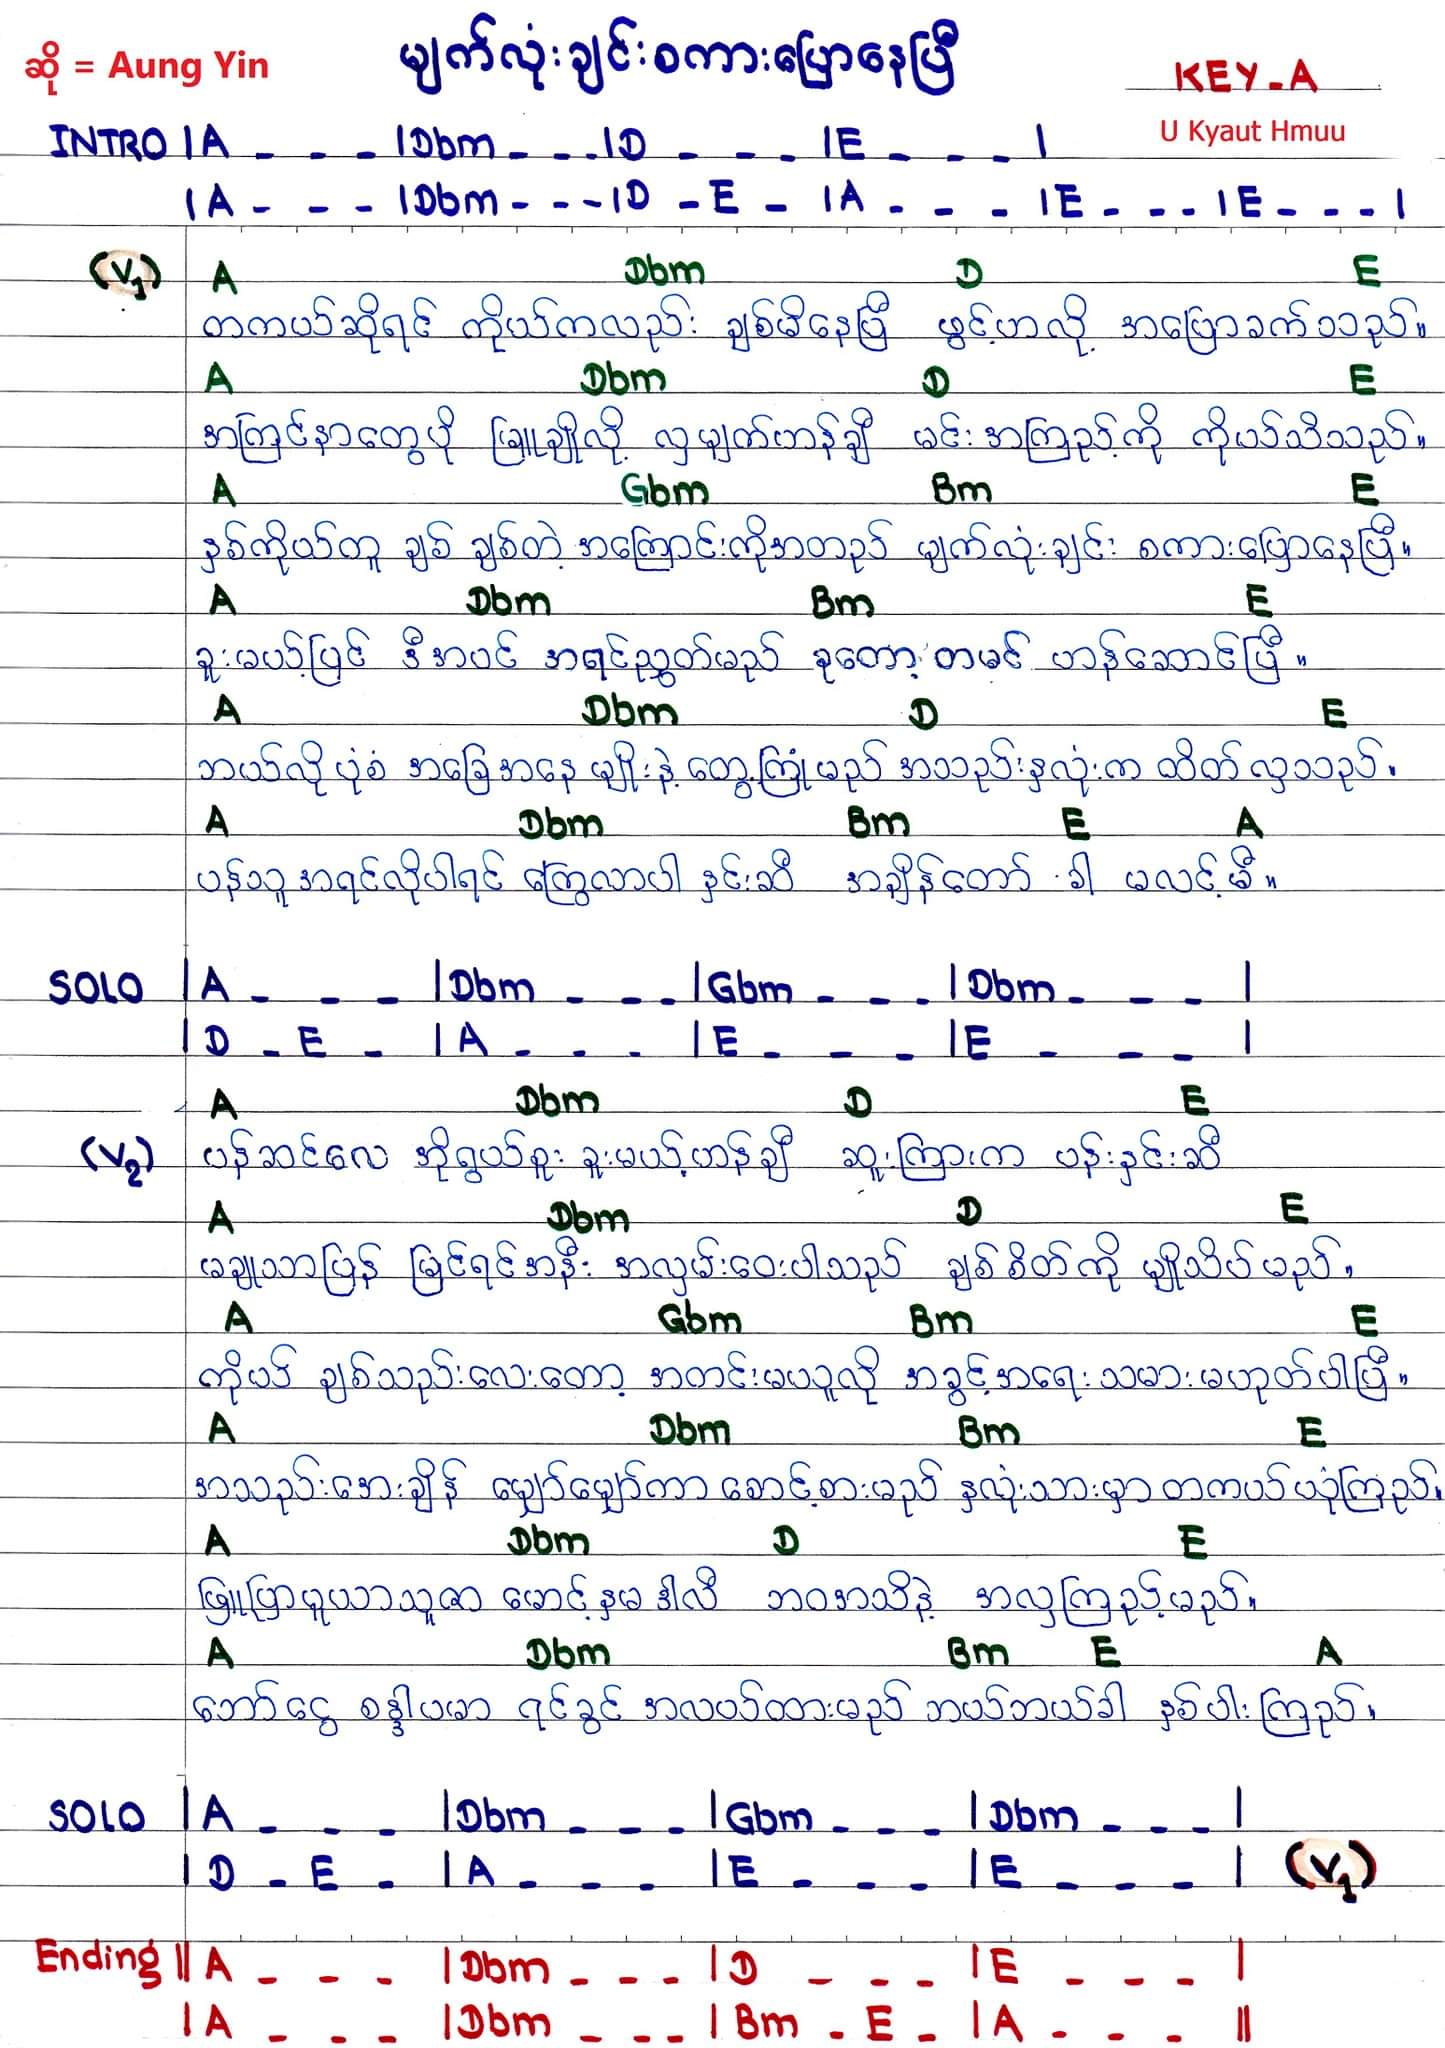 ဆို = Aung Yin
မျက်လုံးချင်းစကားပြောနေပြီ
KEY-A
U Kyaut Hmuu
INTRO |A - - - |Dbm - - - |D - - - |E - - - |
|A - - - |Dbm - - - |D - E - |A - - - |E - - - |E - - - |
(V1) A Dbm D E
တကယ်ဆိုရင် ကိုယ်ကလည်း ချစ်မိနေပြီ ဖွင့်ဟလို့ အပြောခက်သည်။
A Dbm D E
အကြင်နာတွေပို မြူချိုလို့ လှမျက်ဟန်ချီ မင်းအကြည့်ကို ကိုယ်သိသည်။
A Gbm Bm E
နှစ်ကိုယ်တူ ချစ် ချစ်တဲ့ အကြောင်းကိုအတည် မျက်လုံးချင်း စကားပြောနေပြီ။
A Dbm Bm E
ခူးမယ့်ပြင် ဒီအပင် အရင်ညွှတ်မည် ခုတော့ တမင် ဟန်ဆောင်ပြီ။
A Dbm D E
ဘယ်လိုပုံစံ အခြေအနေမျိုးနဲ့ တွေ့ကြုံမည် အသည်းနှလုံးက ထိတ်လှသည်။
A Dbm Bm E A
ပန်သူ အရင်လိုပါရင် ကြွေလာပါ နှင်းဆီ အချိန်တော် ခါ မလင့်မီ။
SOLO |A - - - |Dbm - - - |Gbm - - - |Dbm - - - |
|D - E - |A - - - |E - - - |E - - - |
A Dbm D E
(V2) ပန်ဆင်လေ အိုရွယ်စူး ခူးမယ့်ဟန်ချီ ဆူးကြားက ပန်းနှင်းဆီ
A Dbm D E
မချုသာပြန် မြင်ရင်အနီး အလှမ်းဝေးပါသည် ချစ်စိတ်ကို မျိုသိပ်မည်။
A Gbm Bm E
ကိုယ် ချစ်သည်းလေးတော့ အတင်းမယူလို အခွင့်အရေးသမားမဟုတ်ပါပြီ။
A Dbm Bm E
အသည်းအေးချိန် မျှော်မျှော်ကာ စောင့်စားမည် နှလုံးသားမှာ တကယ်ယုံကြည်။
A Dbm D E
ဖြူပြာပူယာသူဇာ မောင့်နှမဒါလီ ဘဝအသိနဲ့ အလှကြည့်မည်။
A Dbm Bm E A
ဘော်ငွေ စန္ဒါပမာ ရင်ခွင် အလယ်ထားမည် ဘယ်ဘယ်ခါ နှစ်ပါးကြည်။
SOLO |A - - - |Dbm - - - |Gbm - - - |Dbm - - - |
|D - E - |A - - - |E - - - |E - - - | (V1)
Ending ||A - - - |Dbm - - - |D - - - |E - - - |
|A - - - |Dbm - - - |Bm - E - |A - - - ||